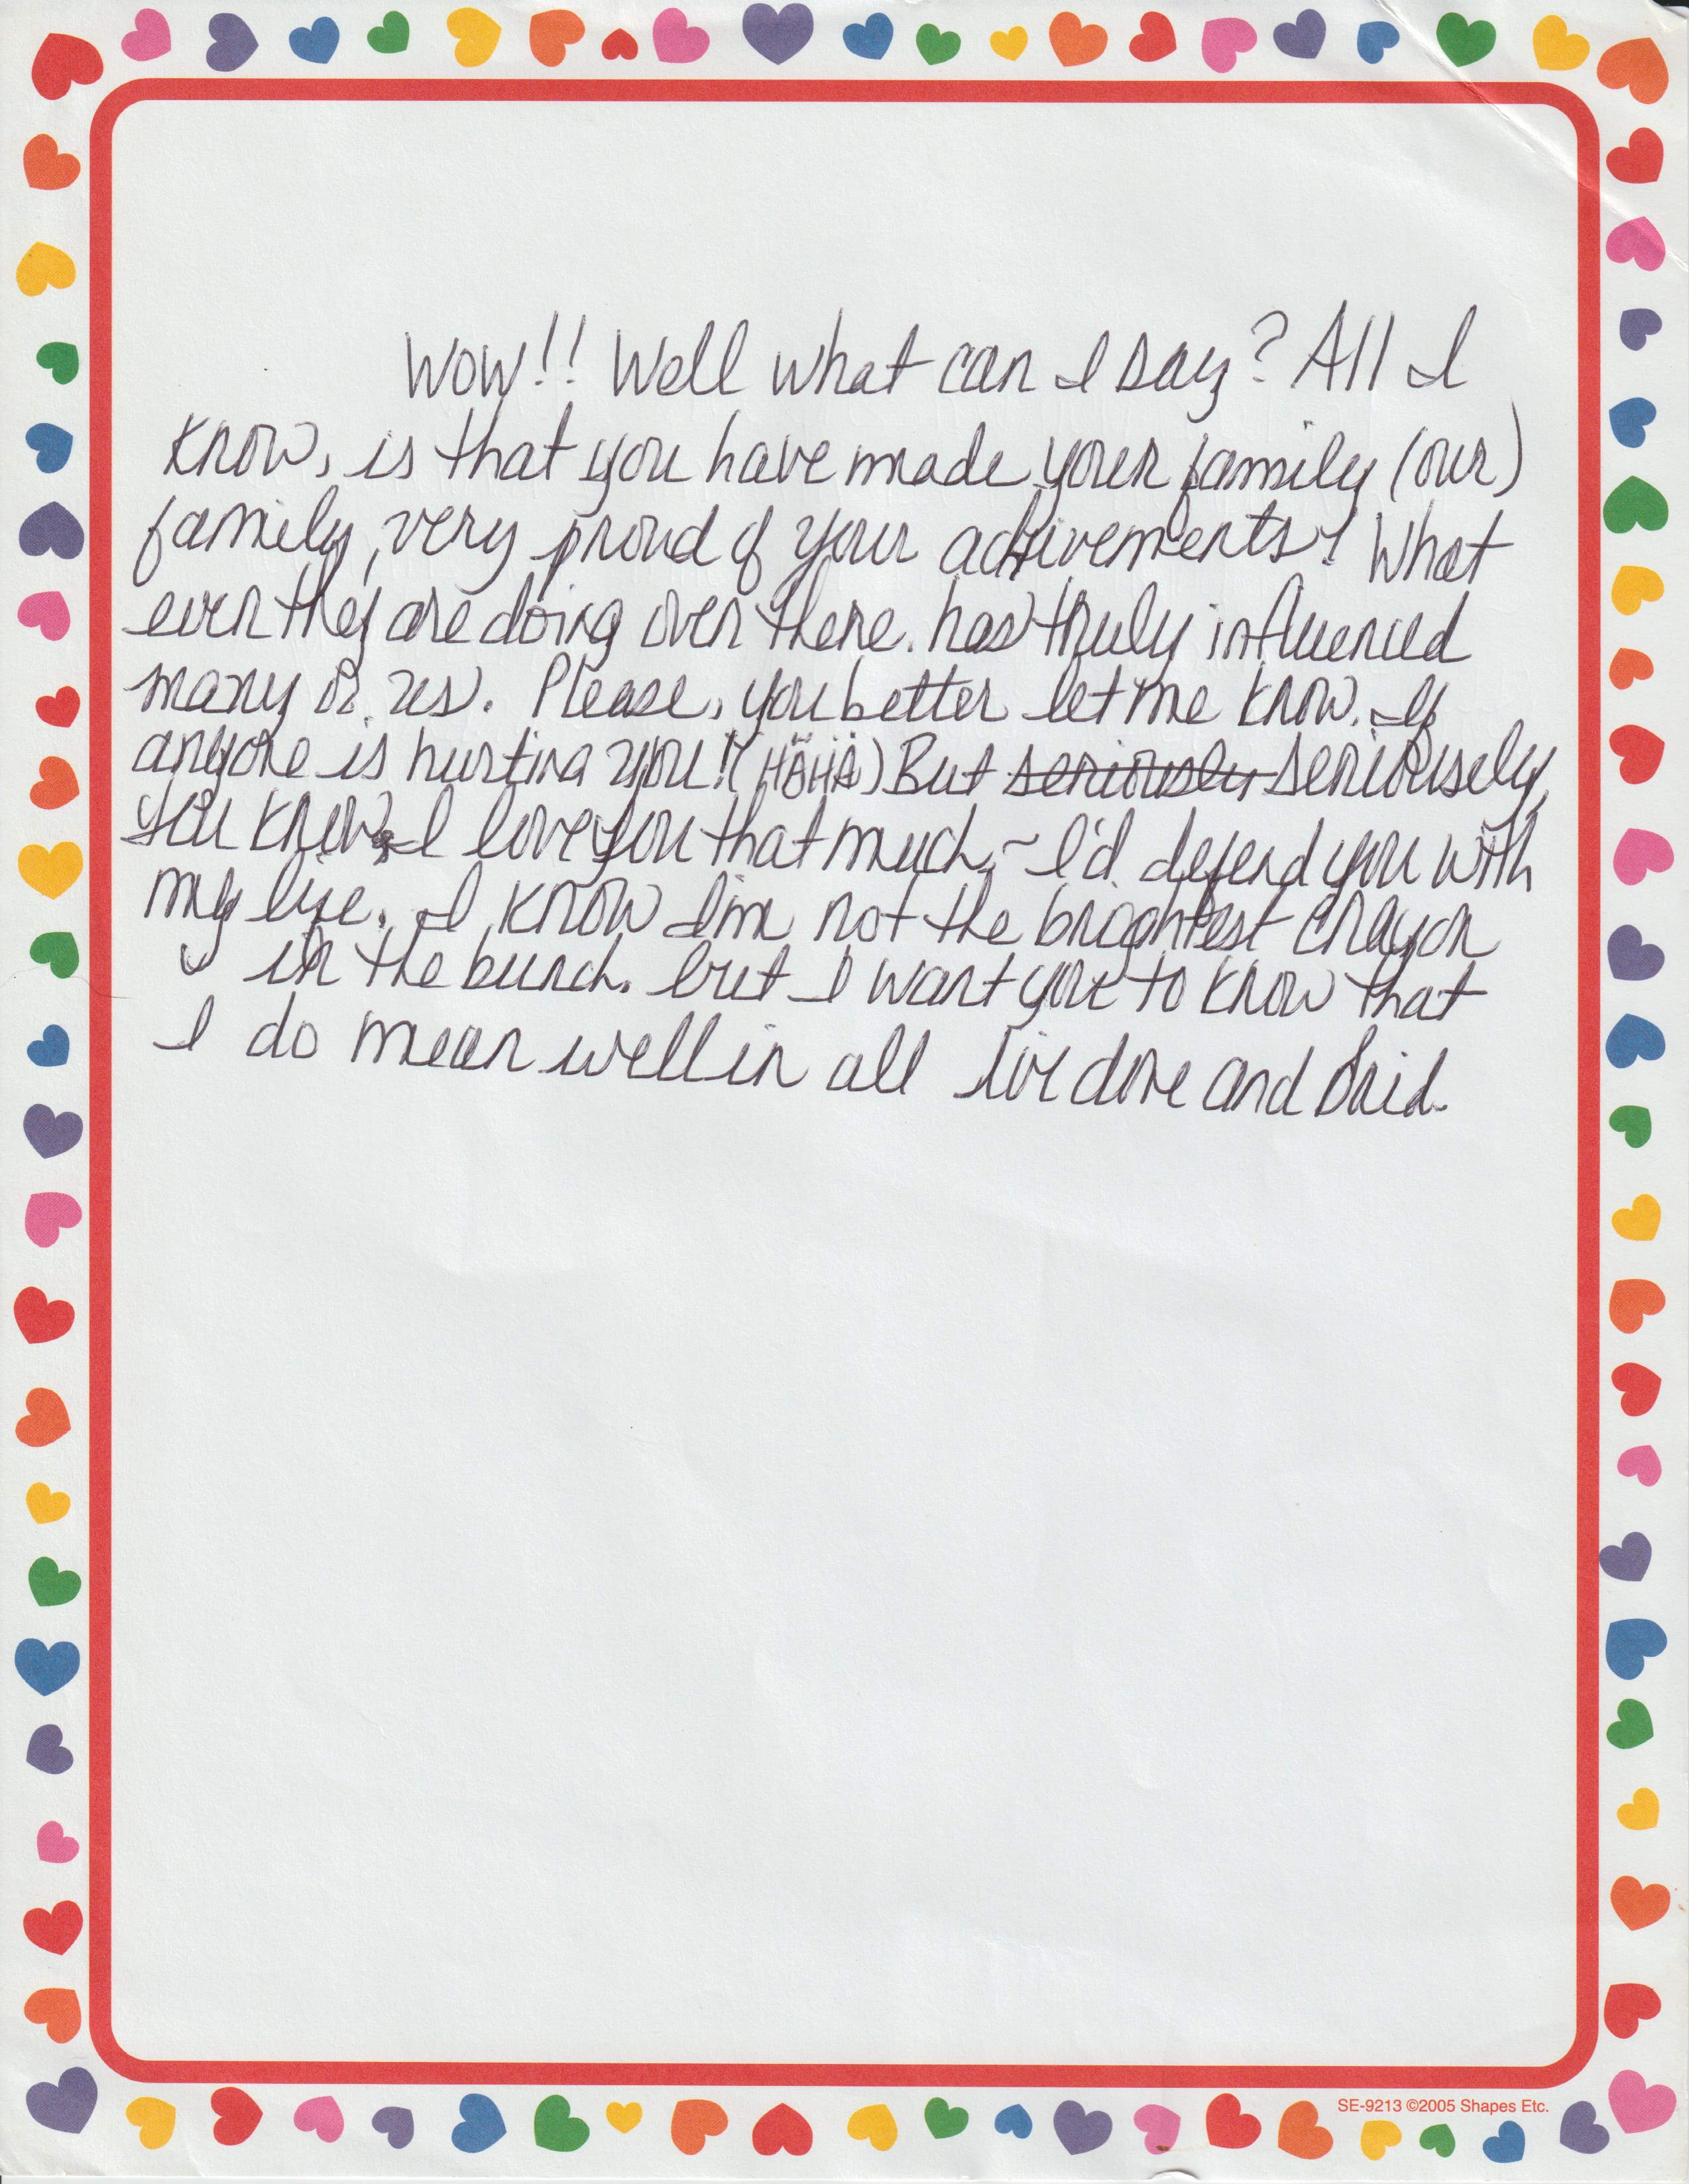 Wow!! Well what can I say? All I
know, is that you have made your family (our)
family, very proud of your achivements! What
ever they are doing over there. has truly influenced
many of us. Please, you better let me know. If
anyone is hurting you!! (HAHA) But seriously seriousely,
you know I love you that much, ~ I'd defend you with
my life. I know I'm not the brightest crayon
in the bunch. but I want you to know that
I do mean well in all I've done and said.
SE-9213 ©2005 Shapes Etc.